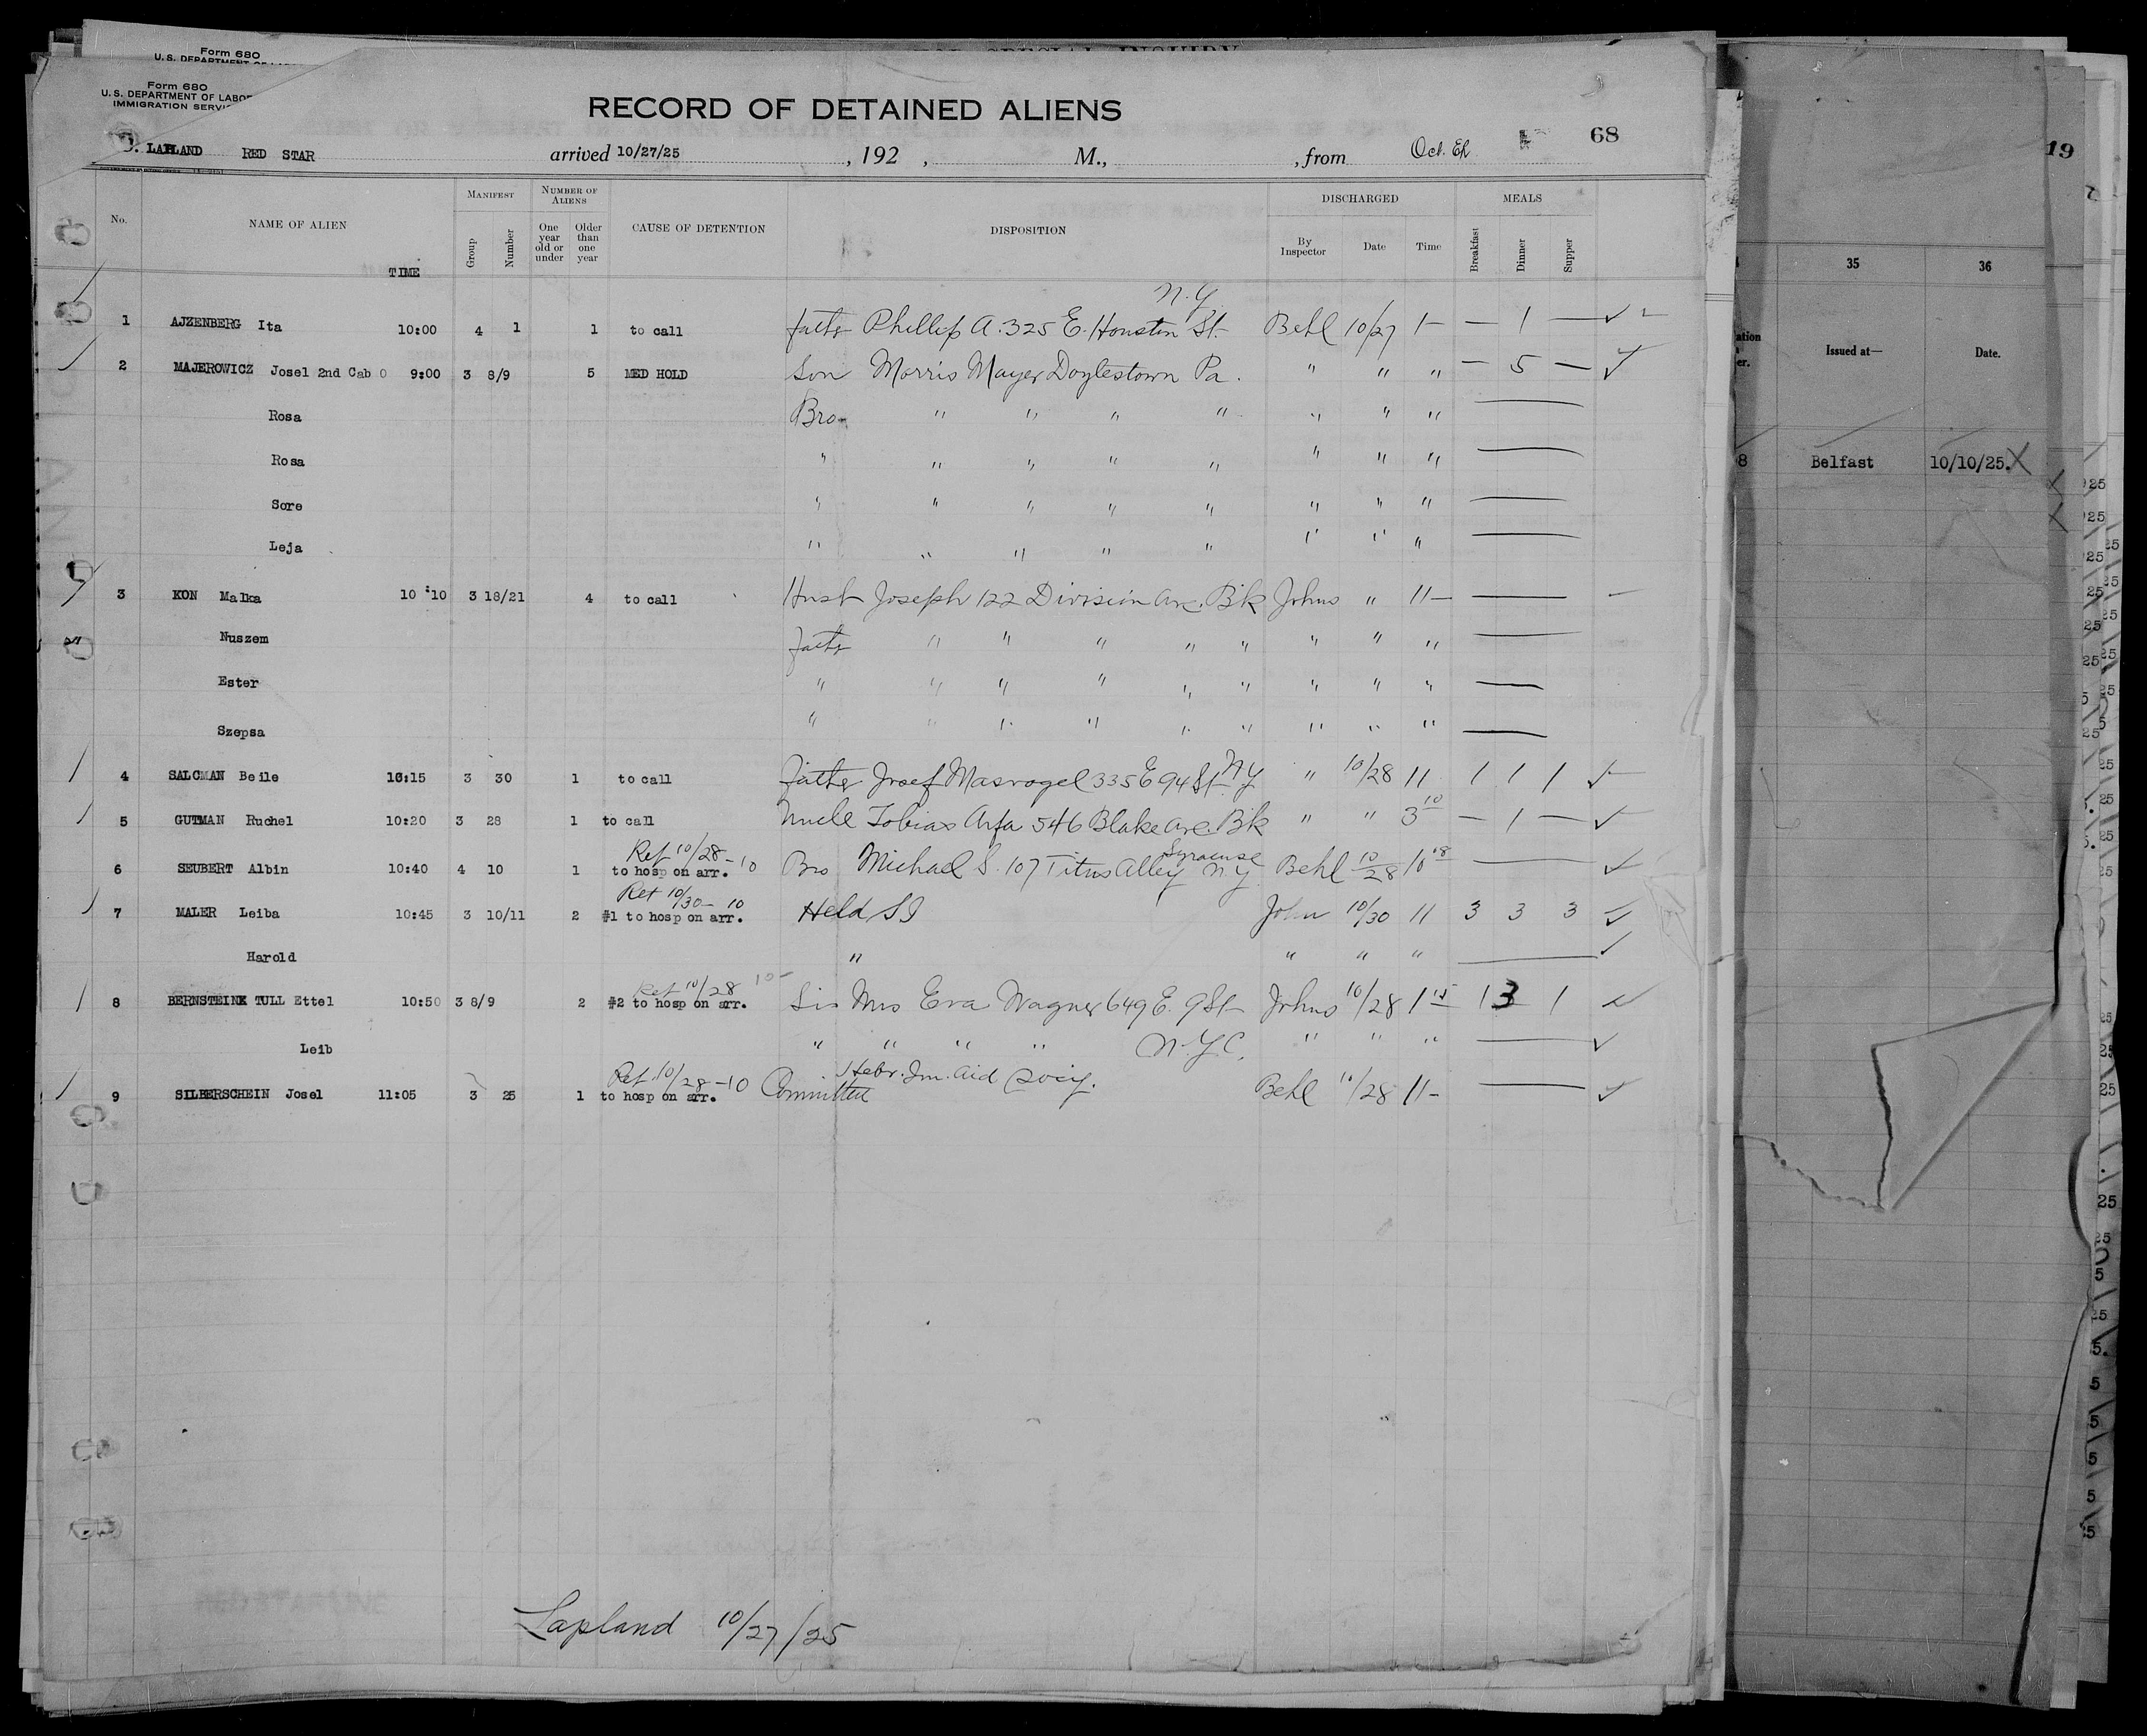 Form 680
U. S. DEPARTMENT OF
Form 680
U. S. DEPARTMENT OF LABOR
IMMIGRATION SERVICE
RECORD OF DETAINED ALIENS
68
LAPLAND RED STAR arrived 10/27/25, 192 , M., , from Oct. Eh
No. NAME OF ALIEN TIME MANIFEST Group Number NUMBER OF ALIENS One year old or under Older than one year CAUSE OF DETENTION DISPOSITION DISCHARGED By Inspector Date Time MEALS Breakfast Dinner Supper
N.Y.
1 AJZENBERG Ita 10:00 4 1 1 to call father Phillip A. 325 E. Houston St. Behl 10/27 1— — 1 —
2 MAJEROWICZ Josel 2nd Cab O 9:00 3 8/9 5 MED HOLD Son Morris Mayer Doylestown Pa. " " " — 5 —
Rosa Bro. " " " " " " "
Rosa " " " " " " " "
Sore " " " " " " " "
Leja " " " " " " " "
3 KON Malka 10:10 3 18/21 4 to call Husb Joseph 122 Division Ave. Bk Johns " 11—
Nuszem father " " " " " " " "
Ester " " " " " " " " "
Szepsa " " " " " " " " "
4 SALCMAN Beile 10:15 3 30 1 to call father Josef Masvogel 335 E 94 St NY " 10/28 11 1 1 1
5 GUTMAN Ruchel 10:20 3 28 1 to call Uncle Tobias Arfa 546 Blake Ave. Bk " " 3 10 — 1 —
Ret 10/28—10 Syracuse
6 SEUBERT Albin 10:40 4 10 1 to hosp on arr. Bro Michael S. 107 Titus Alley N.Y. Behl 10/28
Ret 10/30—10
7 MALER Leiba 10:45 3 10/11 2 #1 to hosp on arr. Held SI John 10/30 11 3 3 3
Harold " " " "
Ret 10/28 10—
8 BERNSTEINE TULL Ettel 10:50 3 8/9 2 #2 to hosp on arr. Sis Mrs Eva Wagner 649 E. 9 St Johns 10/28 1 15 1 3 1
Leib " " " " N.Y.C. " " "
Ret 10/28—10 Hebr. Im. Aid Socy.
9 SILBERSCHEIN Josel 11:05 3 25 1 to hosp on arr. Committee Behl 10/28 11—
Lapland 10/27/25
19
35 36
Issued at— Date.
8 Belfast 10/10/25. X